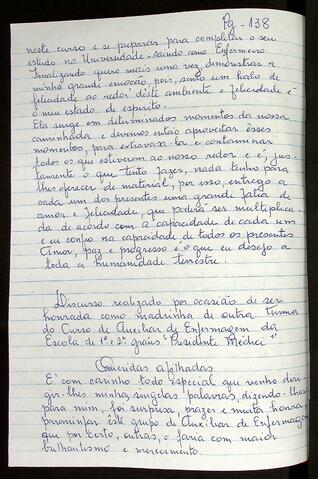 Pg - 138
neste curso e se preparas para completar o seu
estudo na Universidade - saindo como Enfermeiro
Finalizando quero mais uma vez, demonstrar a
minha grande emoção pois, sinto um halo de
felicidade ao redor deste ambiente e felicidade é
o meu estado de espirito.
Ela surge em determinados momentos da nossa
caminhada e devemos então aproveitar esses
momentos, para extravasá-la e contaminar
todos os que estiverem ao nosso redor e é, jus-
tamente o que tento fazer, nada tenho para
lhes oferecer de material, por isso, entrego a
cada um dos presentes uma grande fatia de
amor e felicidade, que poderá ser multiplica-
da de acordo com a capacidade de cada um
e eu confio na capacidade de todos os presentes
Amor, paz e progresso é o que eu desejo a
toda a humanidade terrestre.
Discurso realizado por ocasião de ser
honrada como madrinha de outra turma
do Curso de Auxiliar de Enfermagem da
Escola de 1º e 2º graus "Presidente Médici"
Queridas afilhadas
É com carinho todo especial que venho diri-
gir-lhes minhas singelas palavras, dizendo-lhes
para mim, foi surpresa, prazer e muita honra,
paraninfar este grupo de Auxiliar de Enfermagem
que por certo, outras, o faria com maior
brilhantismo e merecimento.